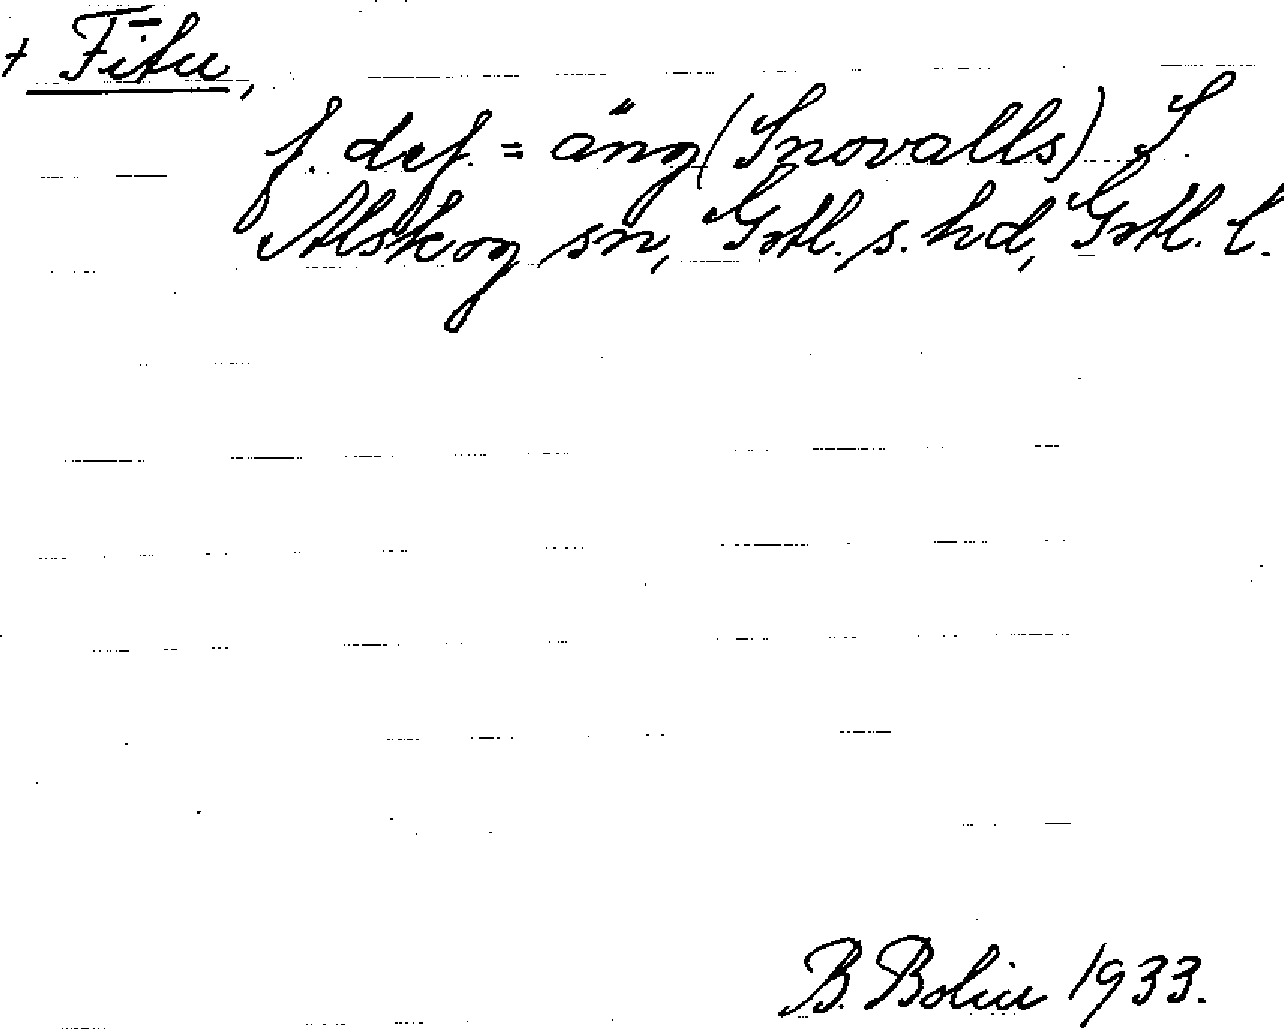 + Fītu,
f. def. = äng (Snovalls) S
Alskog sn, Gotl. s. hd, Gotl. l.
B. Bolin 1933.